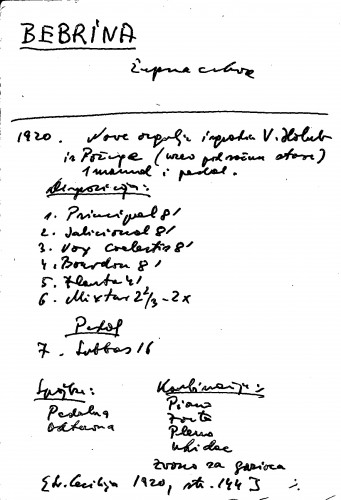 BEBRINA
Župna crkva
1920. Nove orgulje izgradio V. Holub
iz Požege (uzeo pod račun stare)
1 manual i pedal.
Dispozicija:
1. Principal 8'
2. Salicional 8'
3. Vox Coelestis 8'
4. Bourdon 8'
5. Flauta 4'
6. Mixtur 2 2/3 - 2x
Pedal
7. Subbas 16
Spojke: Kombinacije:
Pedalna Piano
Oktavna Forte
Pleno
zvono za gasioca
[Sv. Cecilija 1920, str. 144]